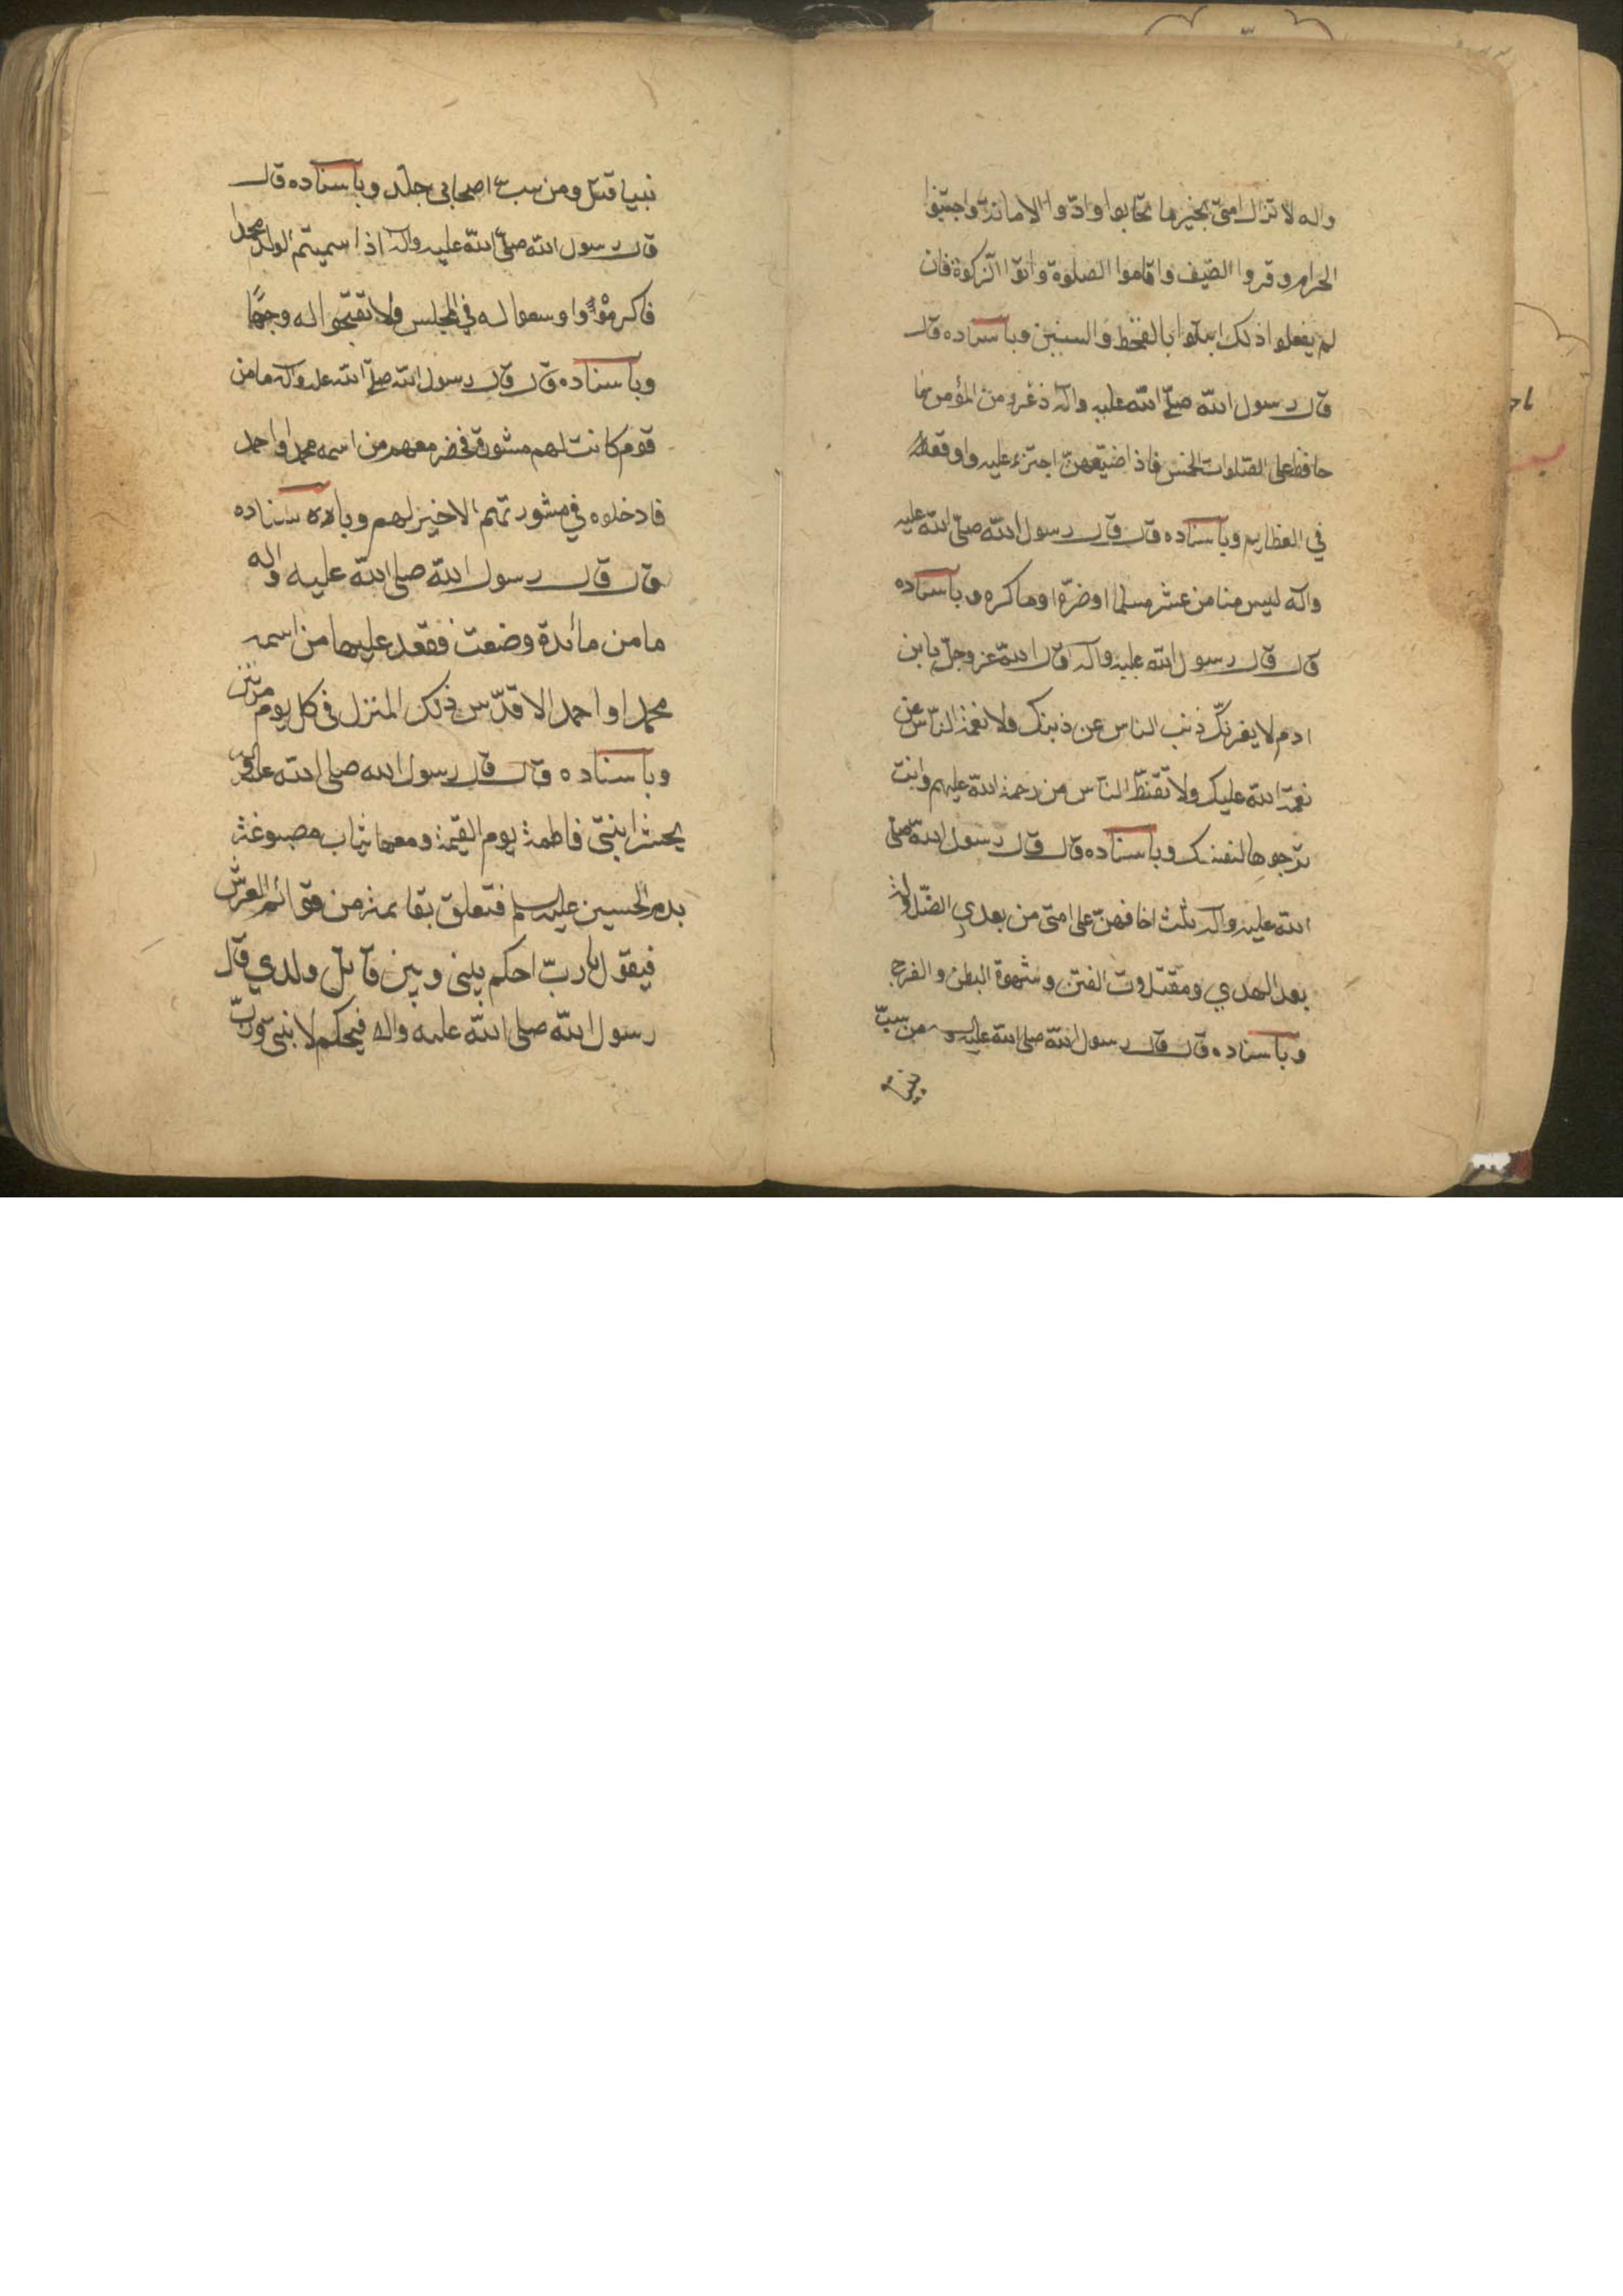 واله لا تزال امتي بخير ما تحابوا وادّوا الامانة واجتنبوا
الحرام وقروا الضيف واقاموا الصلوة واتوا الزكوة فان
لم يفعلوا ذلك ابتلوا بالقحط والسنين وباسناده قال
قال رسول الله صلّى الله عليه وآله ذعرو من المؤمن ما
حافظ على الصلوات الخمس فاذا ضيّعهنّ اجترء عليه واوقعه
في العظايم وباسناده قال قال رسول الله صلّى الله عليه
وآله ليس منا من غش مسلما او ضرّه او ماكره وباسناده
قال قال رسول الله عليه وآله قال الله عز وجلّ يا بن
ادم لا يغرنّك ذنب الناس عن ذبنك ولا نعمة النّاس عن
نعمة الله عليك ولا تقنّط النّاس من رحمة الله عليهم وانت
ترجوها لنفسك وباسناده قال قال رسول الله صلّى
الله عليه وآله ثلث اخافهنّ على امتي من بعدي الضّلالة
بعد الهدي ومضلات الفتن وشهوة البطن والفرج
وباسناده قال قال رسول الله صلى الله عليه وآله من سبّ
نبيا
نبيا قتل ومن سب اصحابي جلد وباسناده قال
قال رسول الله صلّى الله عليه وآله اذا سميتم الولد محمدا
فاكرموه واوسعوا له في المجلس ولا تقبّحوا له وجهًا
وباسناده قال قال رسول الله صلّى الله عليه وآله ما من
قوم كانت لهم مشورة فحضر معهم من اسمه محمد او احمد
فادخلوه في مشورتهم الا خير لهم وباسناده
قال قال رسول الله صلى الله عليه واله
ما من مائدة وضعت فقعد عليها من اسمه
محمد او احمد الا قدّس ذلك المنزل في كل يوم مرتين
وباسناده قال قال رسول الله صلى الله عليه وآله
يحشر ابنتي فاطمة يوم القيمة ومعها ثياب مصبوغة
بدم الحسين عليه السلم فتعلق بقايمة من قوائم العرش
فيقول يا ربّ احكم بيني وبين قاتل ولدي قال
رسول الله صلى الله عليه واله فيحكم لابنتي وربّ